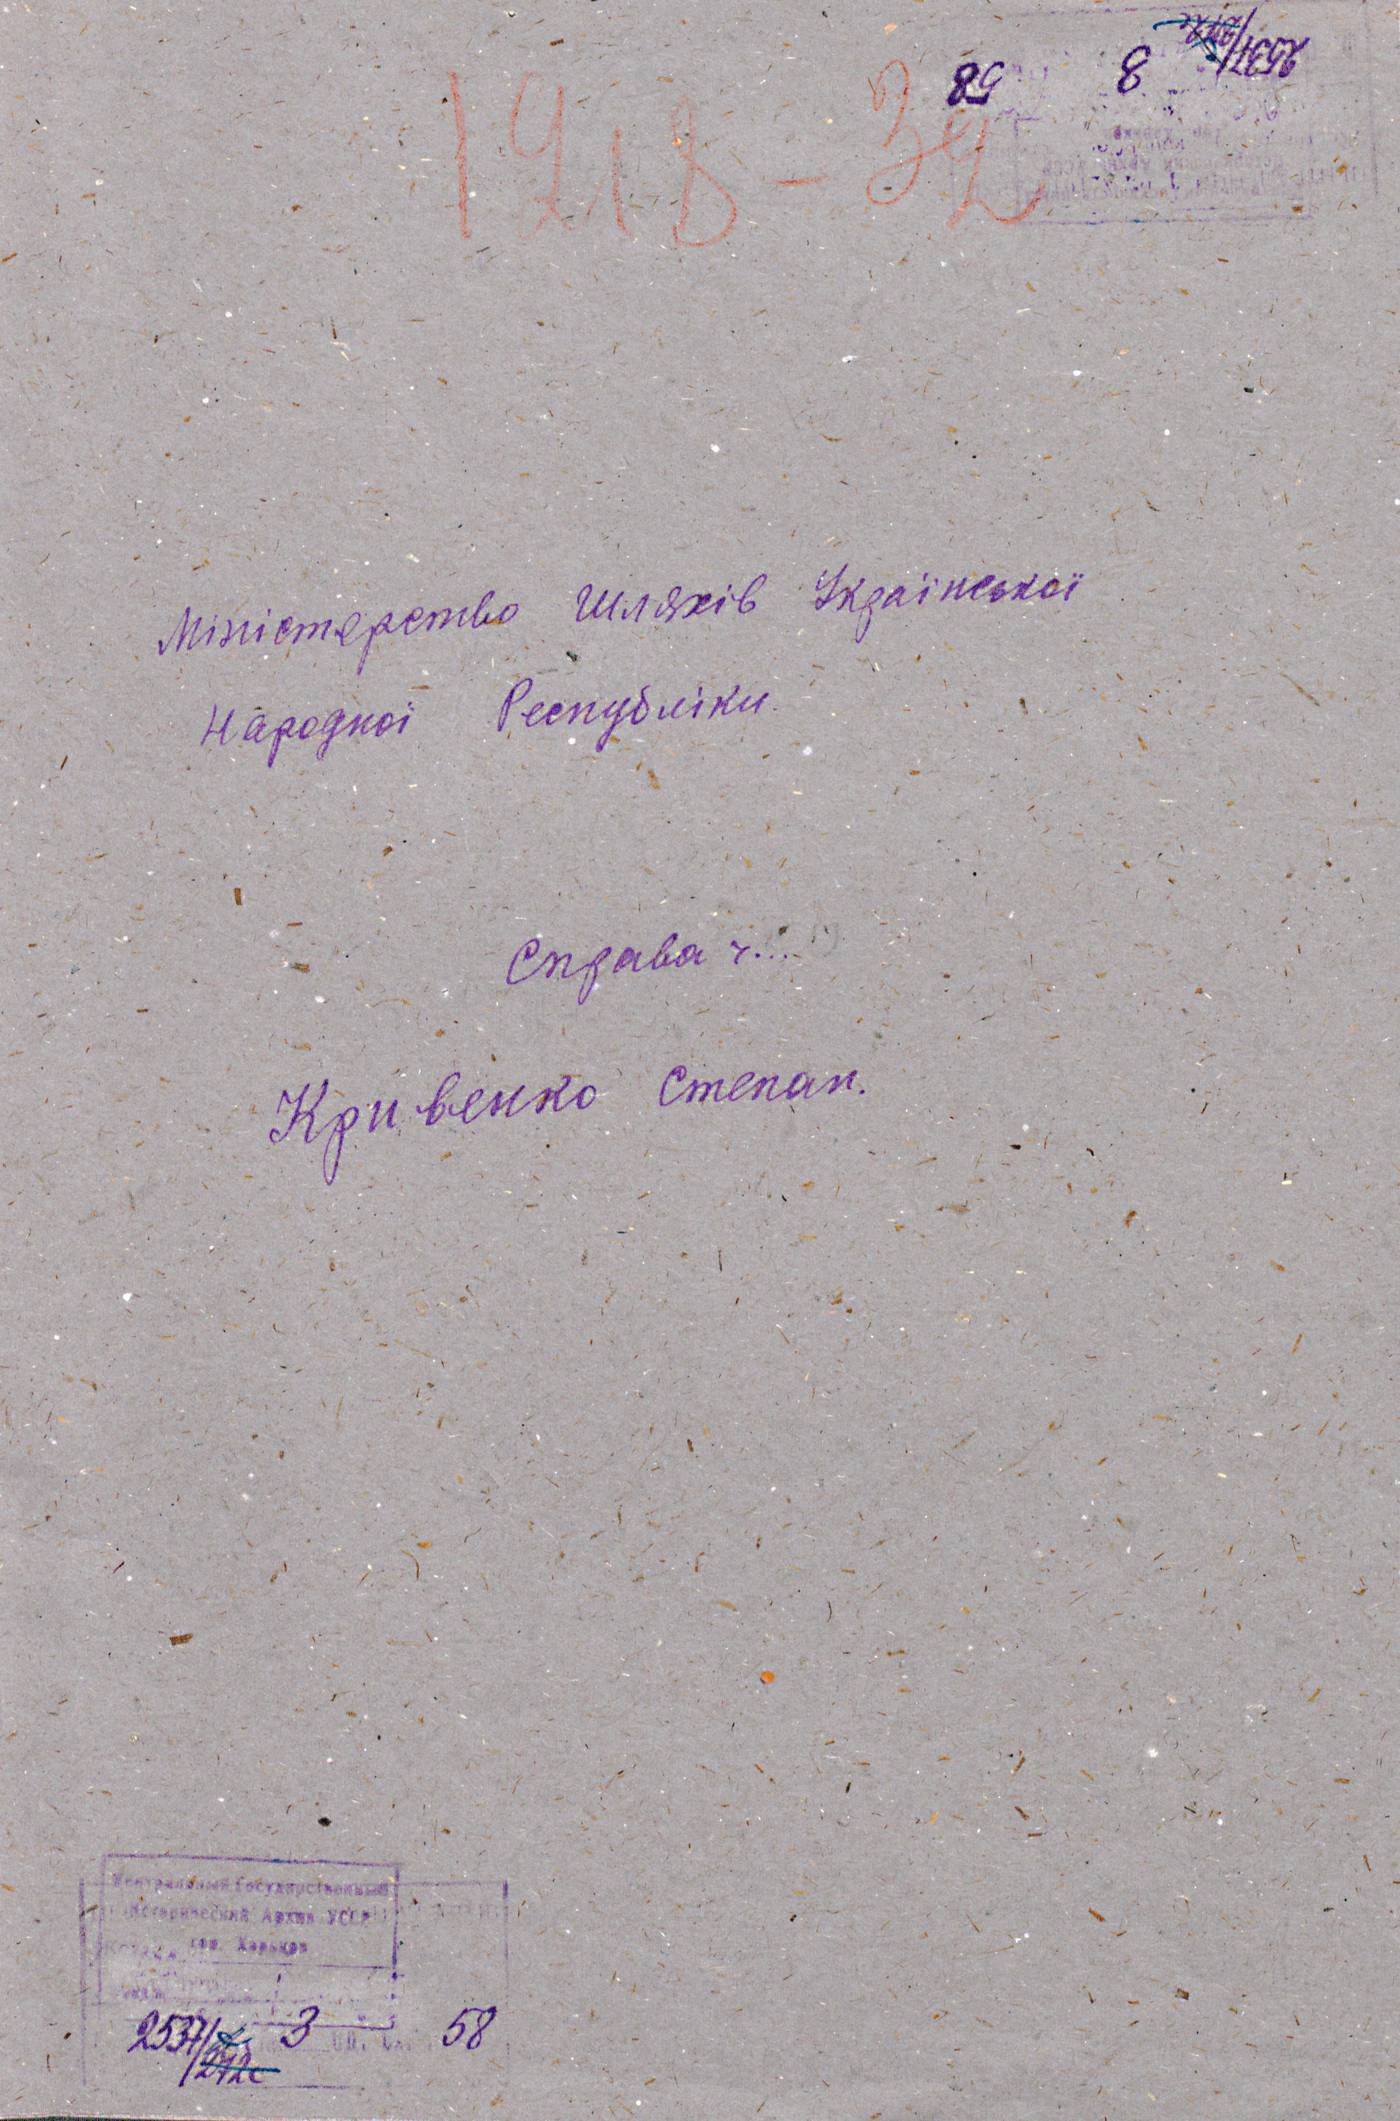 1918-32
58 8 2537/
Міністерство Шляхів Української
Народної Республіки.
Справа ч...
Кривенко Степан.
Центральный Государственный
Исторический Архив УССР
гор. Харьков
2537/ 3 58
272с